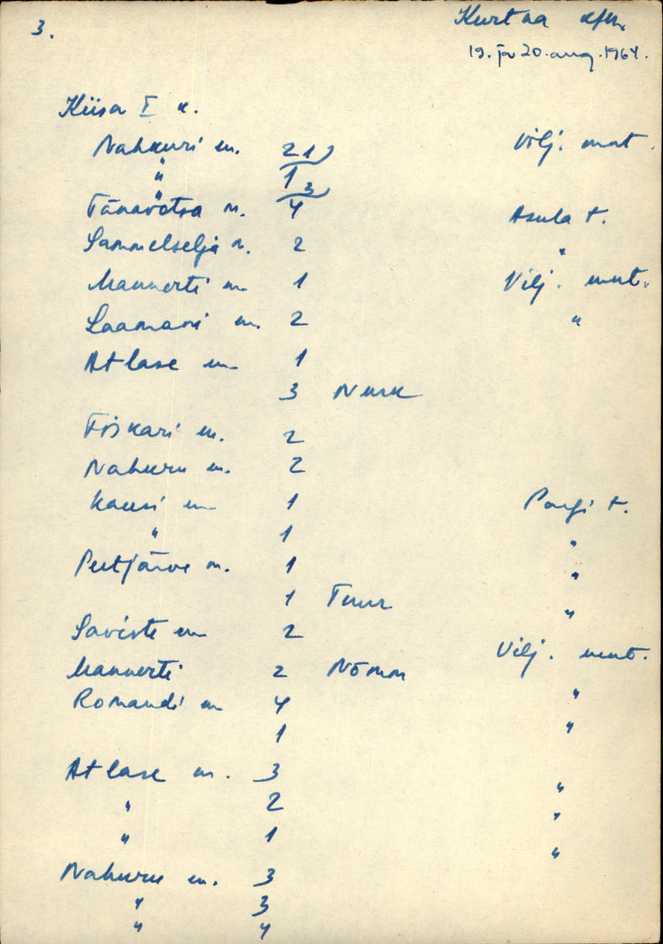 3. Kurtna
19. ja 20. aug. 1964.
Kiisa I k.
Nahkuri m. 2 1) Vilj. mat.
" 1
Tänavotsa m. " 3) 4 Asula t.
Sammelselja m. 2 "
Mannerti m 1 Vilj. mat.
Laamani m. 2 "
Atlase m 1
3 Nurk
Fiskari m. 2
Nahuru m. 2
Kauri m 1 Pargi t.
" 1 "
Peetjärve m. 1 "
1 Tuur "
Saviste m 2
Mannerti 2 Nõmm Vilj. mat.
Romandi m 4 "
1 "
Atlase m. 3 "
" 2 "
" 1 "
Nahuru m. 3
" 3
" 4